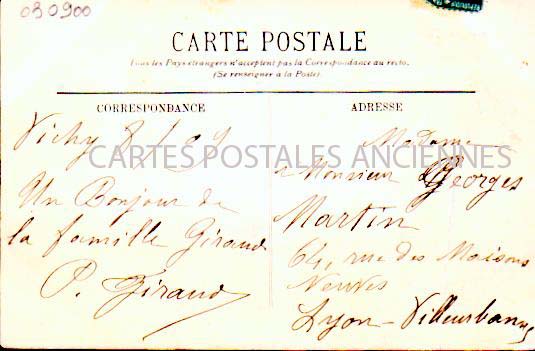 030900
CARTE POSTALE
Tous les Pays étrangers n'acceptent pas la Correspondance au recto.
(Se renseigner à la Poste)
CORRESPONDANCE
Vichy 8/09
Un Bonjour de
la famille Giraud
P. Giraud
ADRESSE
Madame
Monsieur Georges
Martin
64, rue des Maisons
Neuves
Lyon - Villeurbanne
CARTES POSTALES ANCIENNES